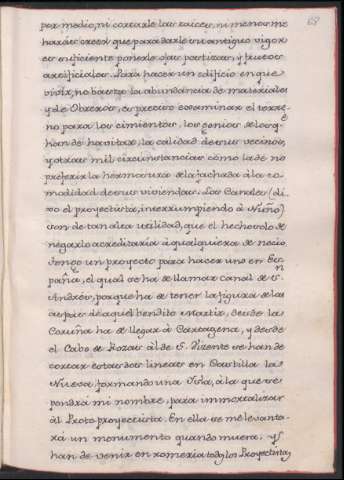 68
por medio, ni cortarle las raices, ni menos me
harán creer que para darle su antiguo vigor
es suficiente ponerle ojas postizas, y frutos
artificiales. Para hacer un edificio en que
vivir, no basta la abundancia de materiales
y de Obreros, es preciso examinar el terre-
no para los cimientos, los genios de los q.e
han de havitar, la calidad de sus vecinos,
y otras mil circunstancias como la de no
preferir la hermosura de la fachada à la co-
modidad de sus viviendas. Los Canales (di-
xo el proyectista, interrumpiendo à Nuño)
son de tan alta utilidad, que el hecho solo de
negarlo acreditaria à qualquiera de necio
Tengo un proyecto para hacer uno en Es-
paña, el qual se ha de llamar canal de S.n
Andrés, porque ha de tener la figura de las
aspas de aquel bendito Martir, desde la
Coruña ha de llegar à Cartagena, y desde
el Cabo de Rozas àl de S. Vizente se han de
cortar estas dos lineas en Castilla la
Nueva, formando una Isla, à la que se
pondrá mi nombre, para inmortalizar
àl Proto proyectista. En ella se me levanta-
rá un monumento quando muera; y
han de venir en romeria todos los Proyectistas